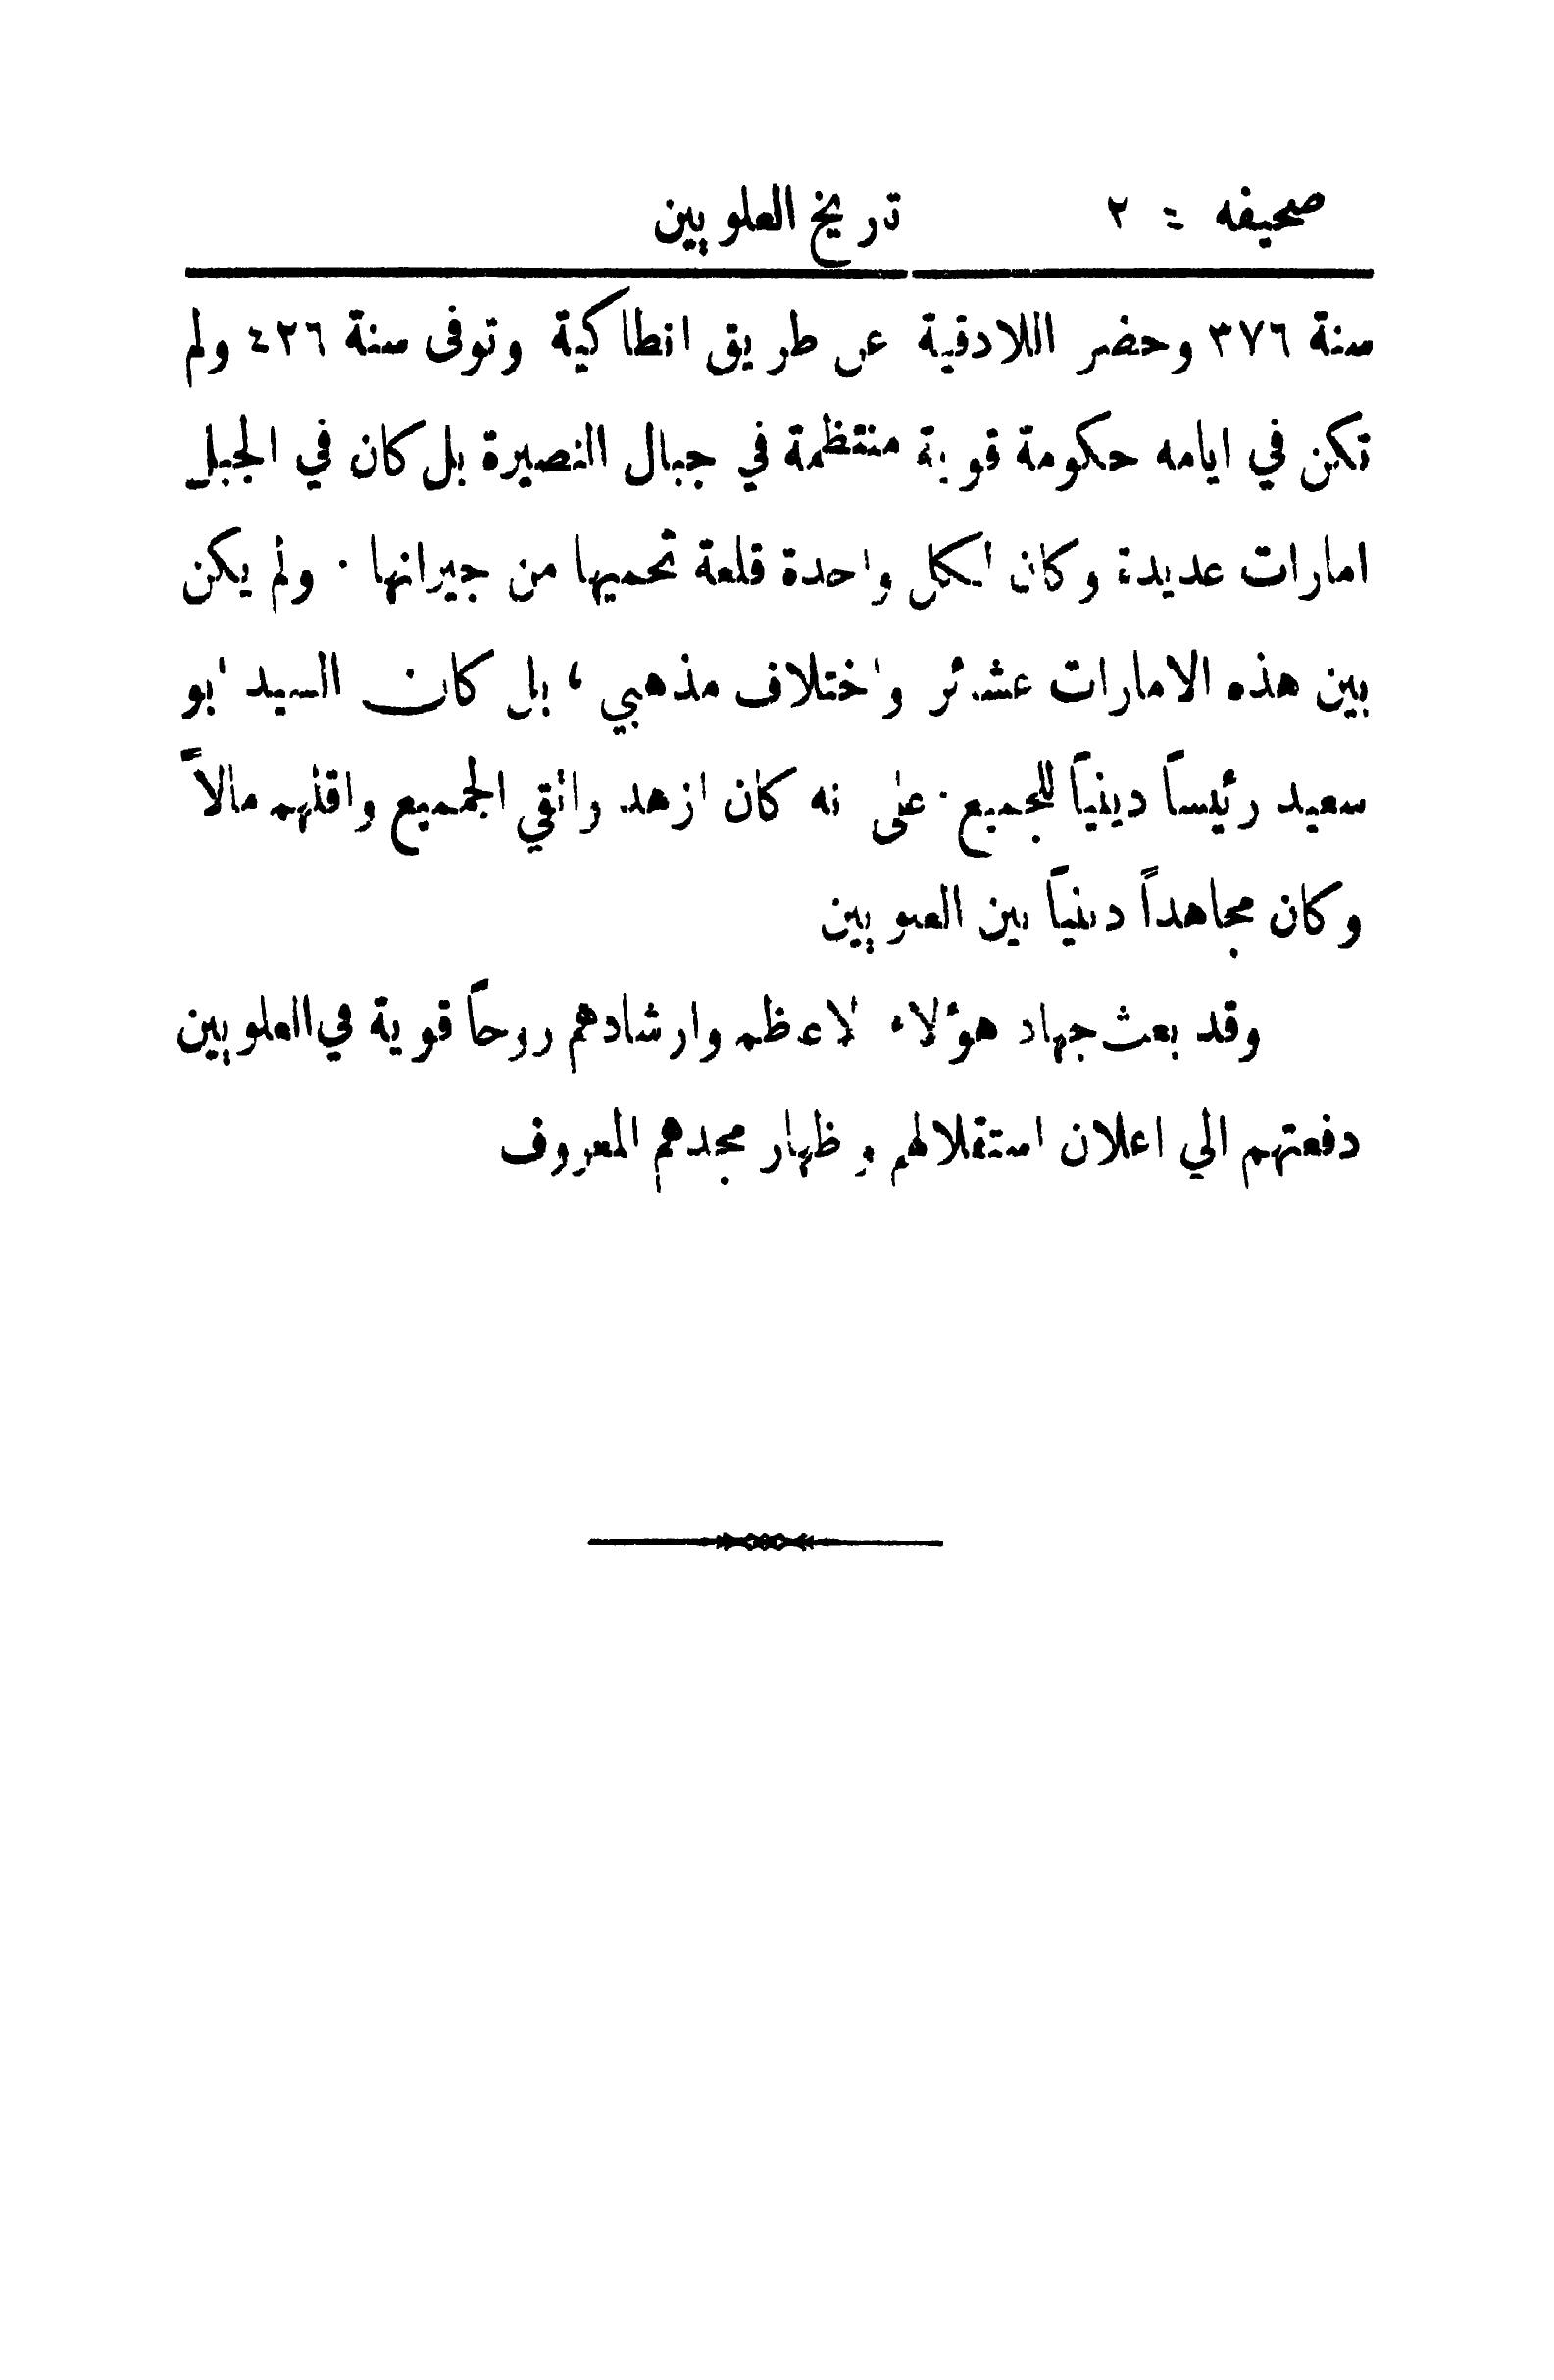 صحيفه = ٢ تاريخ العلويين
سنة ٣٧٦ وحضر اللاذقية عن طريق انطاكية وتوفى سنة ٤٢٦ ولم
تكن في ايامه حكومة قوية منتظمة في جبال النصيرة بل كان في الجبل
امارات عديدة وكان لكل واحدة قلعة تحميها من جيرانها . ولم يكن
بين هذه الامارات عشائر واختلاف مذهبي ، بل كان السيد ابو
سعيد رئيساً دينياً للجميع . على انه كان ازهد واتقي الجميع واقلهم مالاً
وكان مجاهداً دينياً بين العلويين
وقد بعث جهاد هؤلاء الاعاظم وارشادهم روحاً قوية في العلويين
دفعتهم الي اعلان استقلالهم واظهار مجدهم المعروف